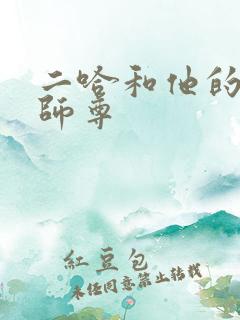 二哈和他的
師尊
紅豆包
未经同意禁止转载